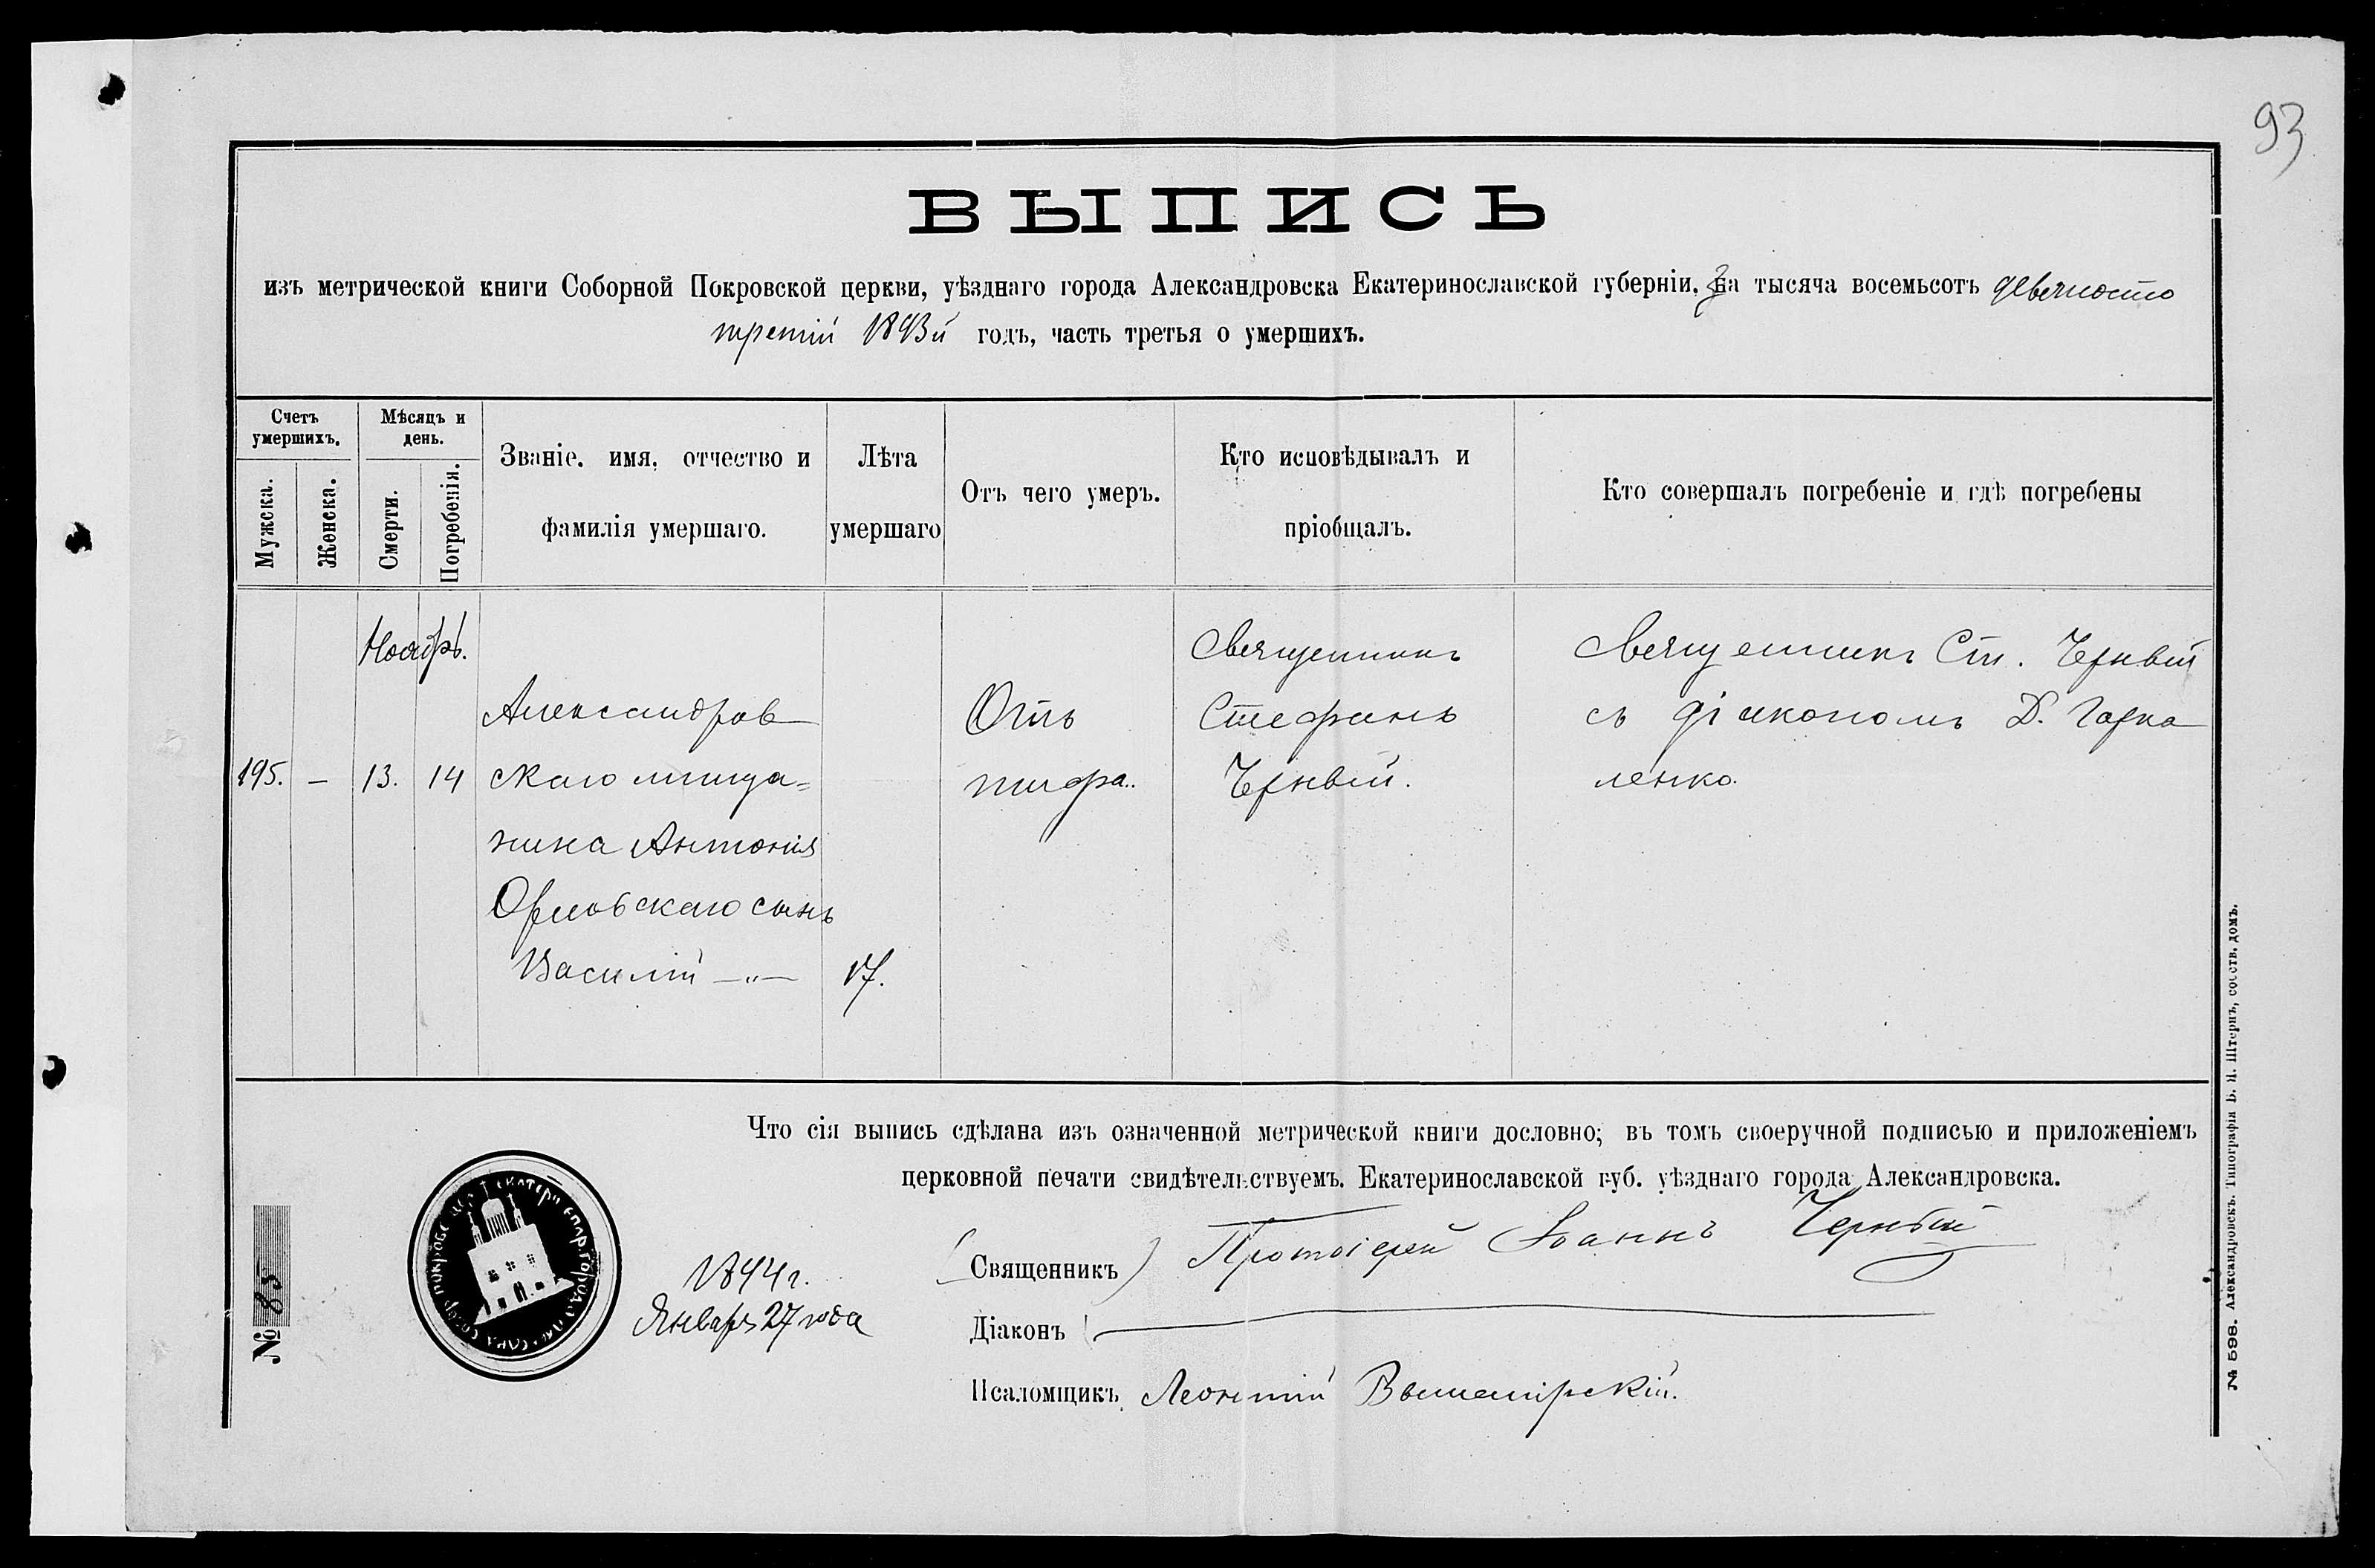 93
ВЫПИСЬ
изъ метрической книги Соборной Покровской церкви, уѣзднаго города Александровска Екатеринославской губерніи, за тысяча восемьсотъ девяносто
третій 1893й годъ, часть третья о умершихъ.
Счетъ умершихъ.
Мужска.
Женска.
Мѣсяцъ и день.
Смерти.
Погребенія.
Званіе, имя, отчество и
фамилія умершаго.
Лѣта
умершаго
Отъ чего умеръ.
Кто исповѣдывалъ и
пріобщалъ.
Кто совершалъ погребеніе и гдѣ погребены
Ноябрь.
195. — 13. 14
Александров
скаго мѣща=
нина Антонія
Орловскаго сынъ
Василій —„—
17.
Отъ
тифа.
Священникъ
Стефанъ
Черный.
Священникъ Ст. Черный
съ діакономъ Д. Гарка
ленко.
Что сія выпись сдѣлана изъ означенной метрической книги дословно; въ томъ своеручной подписью и приложеніемъ
церковной печати свидѣтельствуемъ. Екатеринославской губ. уѣзднаго города Александровска.
№ 85
1894 г.
Январь 27 года
(Священникъ) Протоіерей Іоаннъ Черный
Діаконъ
Псаломщикъ Леонтій Вышемірскій.
№ 598. Александровскъ. Типографія Б. Я. Штернъ, собств. домъ.